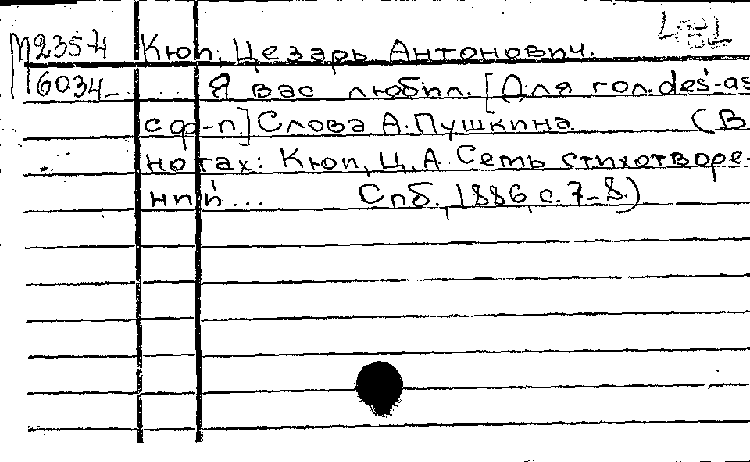 М235-4 Кюи, Цезарь Антонович.
6034- ... Я вас любил. [Для гол. des'-as
с ф-п.] Слова А. Пушкина (В
нотах: Кюи, Ц. А. Семь стихотворе-
ний... Спб., 1886, с. 7-8.)